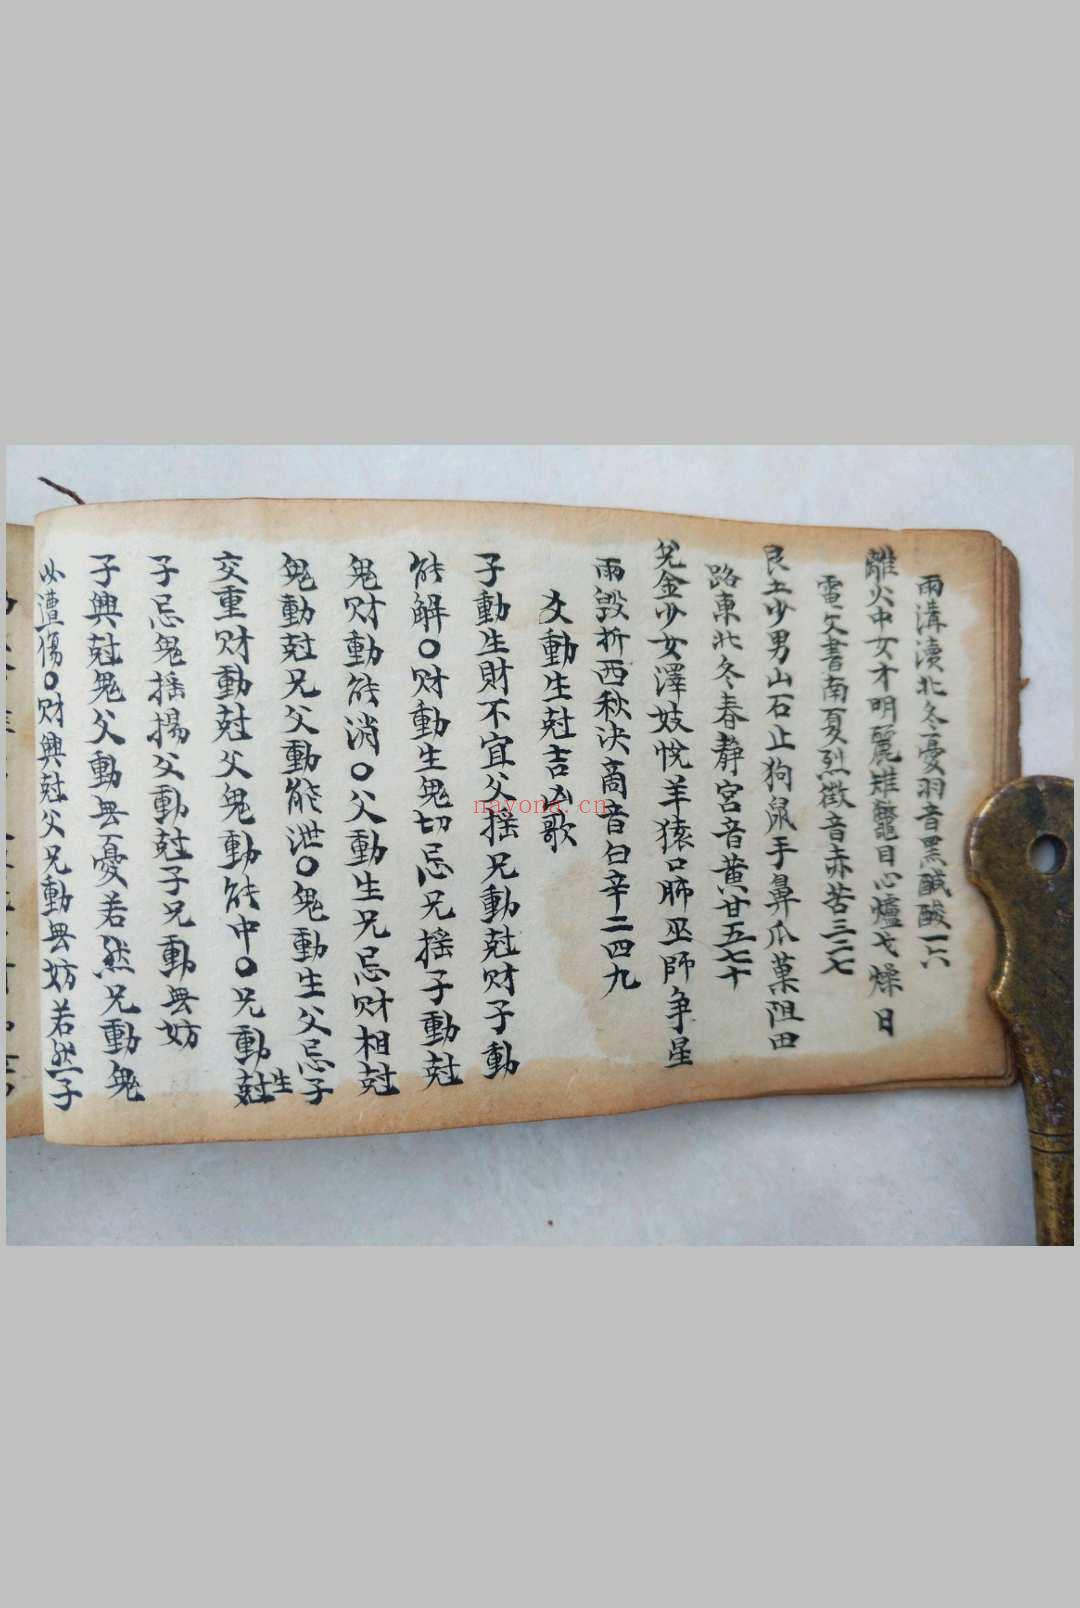 雨溝瀆北冬憂羽音黑鹹酸一六
離火中女才明麗雉鼈目心爐戈燥日
電文書南夏烈徵音赤苦三二七
艮土少男山石止狗鼠手鼻爪菓阻田
路東北冬春静宮音黄甘五七十
兌金少女澤妓悅羊猿口肺巫師争星
雨毀折西秋决商音白辛二四九
爻動生尅吉凶歌
子動生財不宜父摇兄動尅财子動
能解○财動生鬼切忌兄摇子動尅
鬼财動能消○父動生兄忌财相尅
鬼動尅兄父動能泄○鬼動生父忌子
交重财動尅父鬼動能中○兄動尅生
子忌鬼摇揚父動尅子兄動無妨
子興尅鬼父動無憂若然兄動鬼
必遭傷○财興尅父兄動無妨若然子
nayona.cn